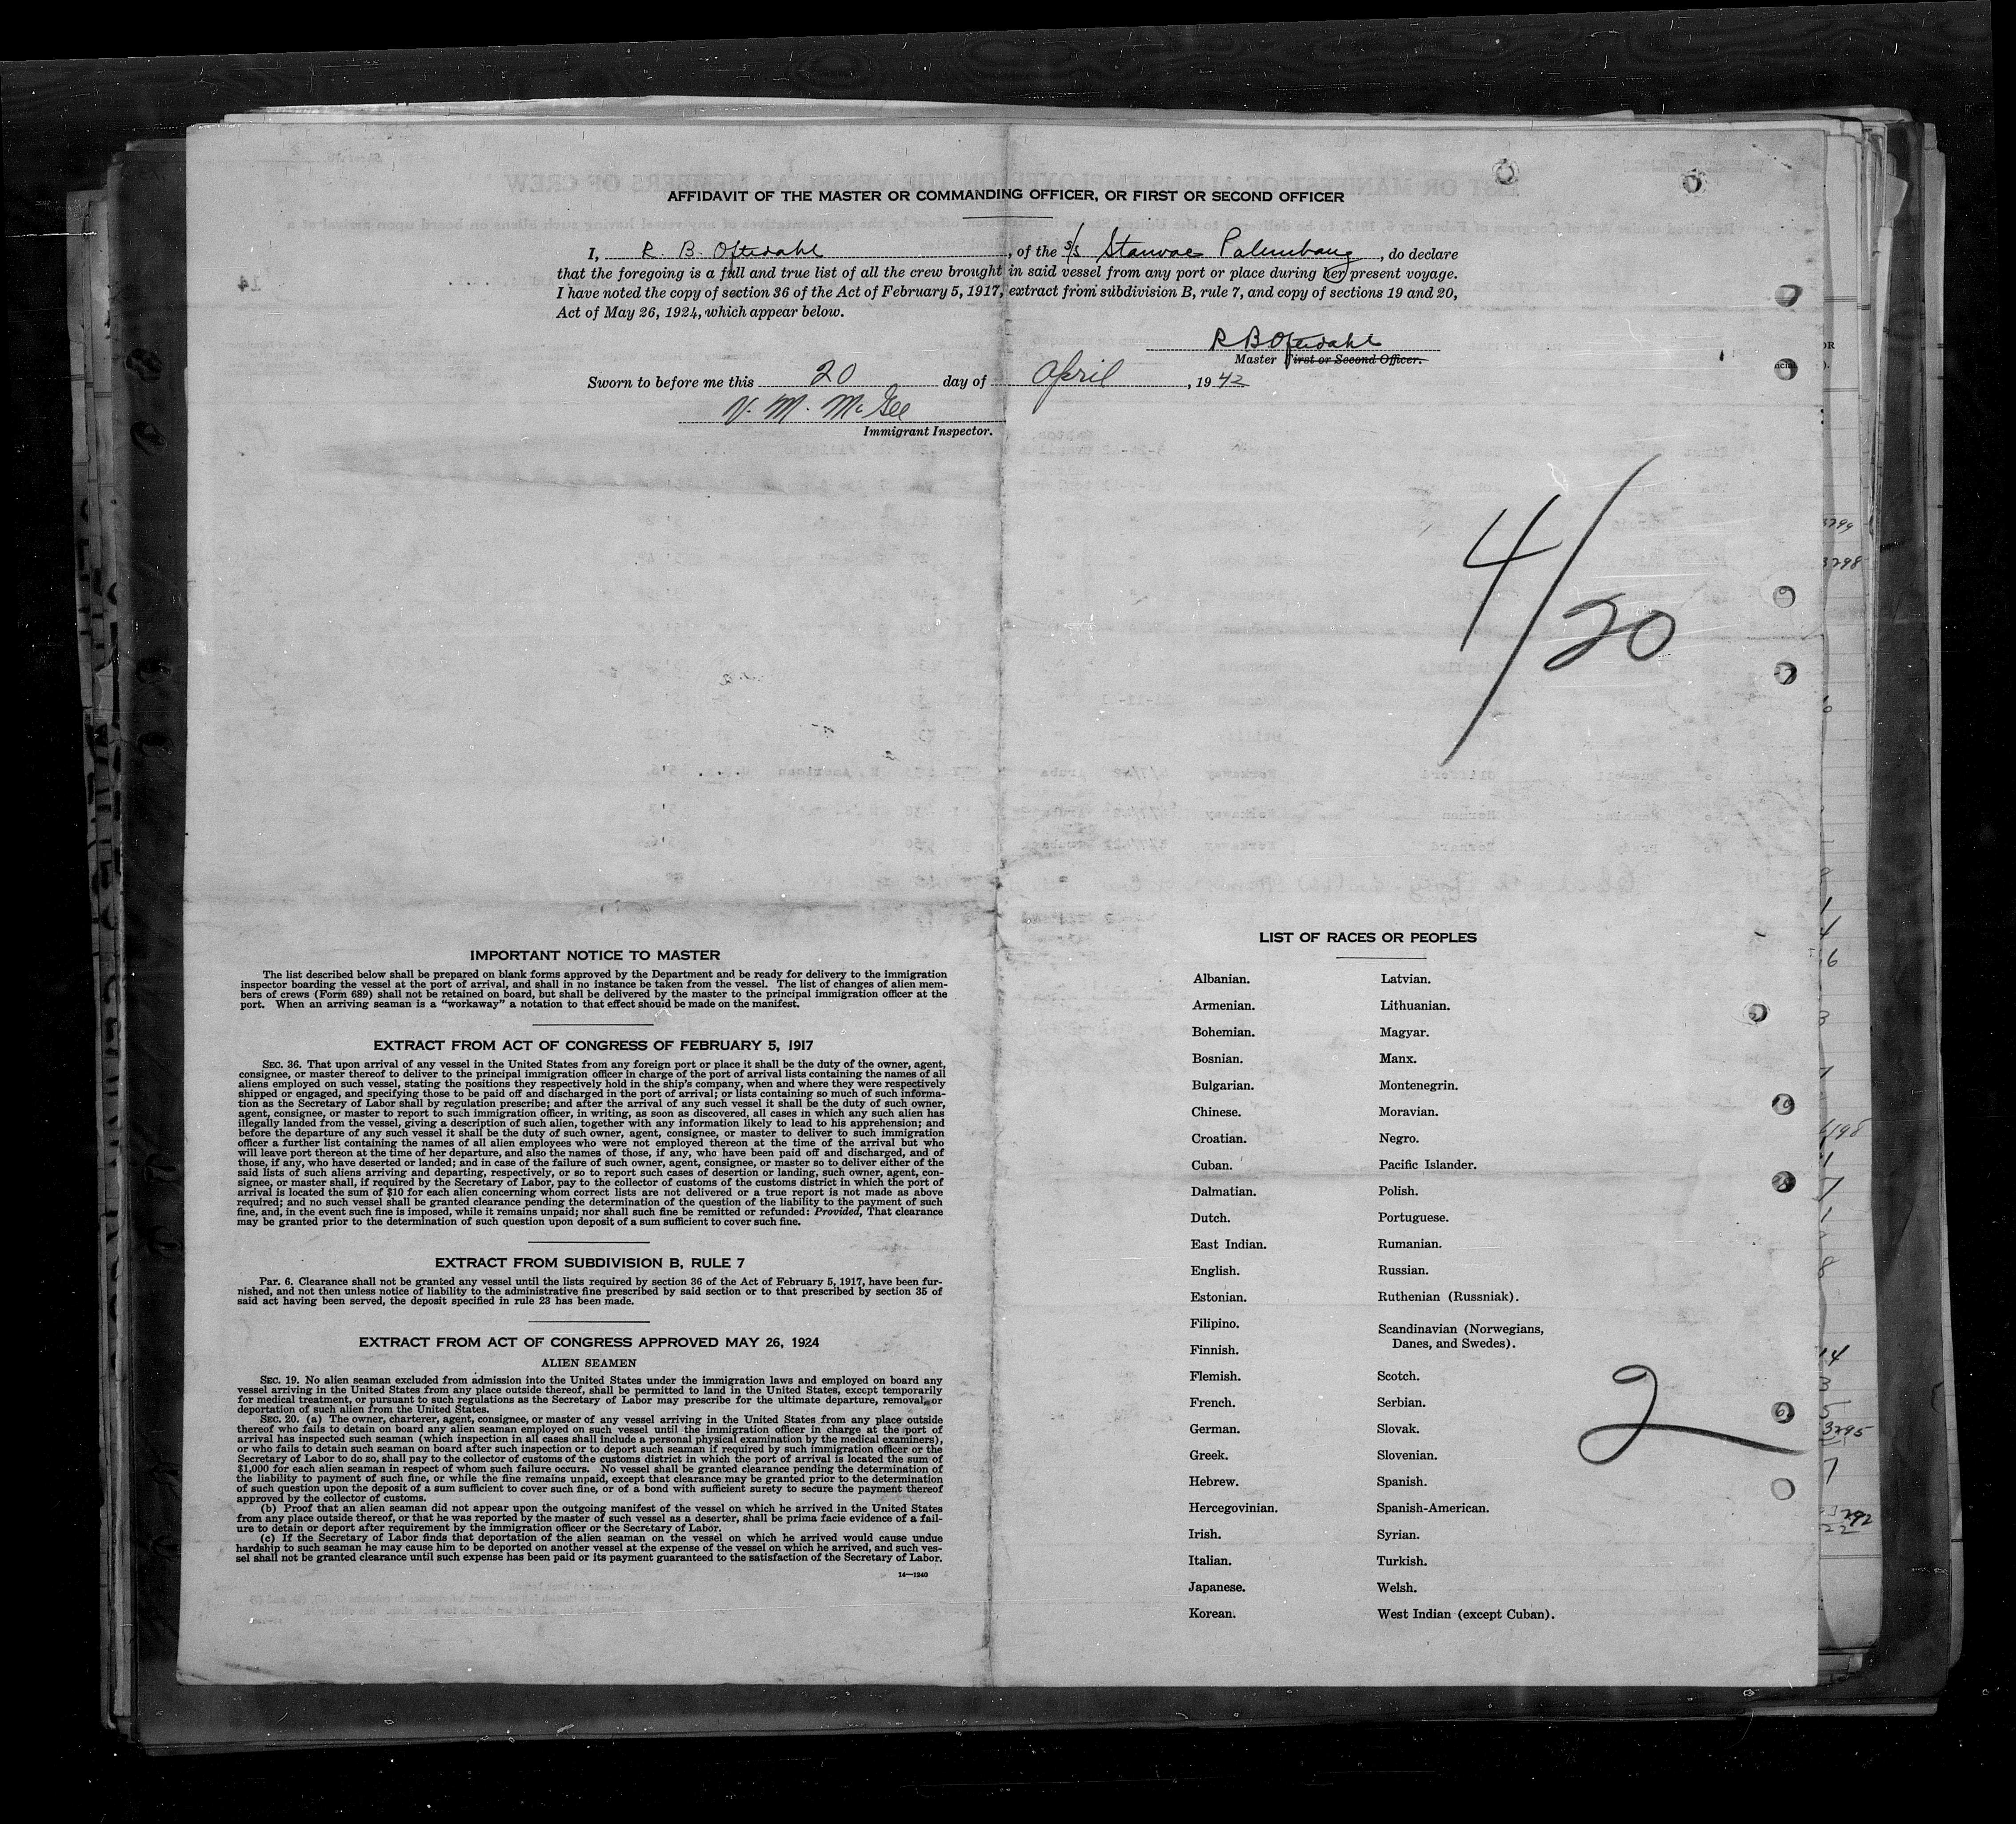 AFFIDAVIT OF THE MASTER OR COMMANDING OFFICER, OR FIRST OR SECOND OFFICER
I, R. B. Oftedahl, of the s/s Stanvac Palembang, do declare
that the foregoing is a full and true list of all the crew brought in said vessel from any port or place during her present voyage.
I have noted the copy of section 36 of the Act of February 5, 1917, extract from subdivision B, rule 7, and copy of sections 19 and 20,
Act of May 26, 1924, which appear below.
R B Oftedahl
Master First or Second Officer.
Sworn to before me this 20 day of April, 1942
V. M. McGee
Immigrant Inspector.
4/20
IMPORTANT NOTICE TO MASTER
The list described below shall be prepared on blank forms approved by the Department and be ready for delivery to the immigration
inspector boarding the vessel at the port of arrival, and shall in no instance be taken from the vessel. The list of changes of alien mem-
bers of crews (Form 689) shall not be retained on board, but shall be delivered by the master to the principal immigration officer at the
port. When an arriving seaman is a "workaway" a notation to that effect should be made on the manifest.
EXTRACT FROM ACT OF CONGRESS OF FEBRUARY 5, 1917
SEC. 36. That upon arrival of any vessel in the United States from any foreign port or place it shall be the duty of the owner, agent,
consignee, or master thereof to deliver to the principal immigration officer in charge of the port of arrival lists containing the names of all
aliens employed on such vessel, stating the positions they respectively hold in the ship's company, when and where they were respectively
shipped or engaged, and specifying those to be paid off and discharged in the port of arrival; or lists containing so much of such informa-
tion as the Secretary of Labor shall by regulation prescribe; and after the arrival of any such vessel it shall be the duty of such owner,
agent, consignee, or master to report to such immigration officer, in writing, as soon as discovered, all cases in which any such alien has
illegally landed from the vessel, giving a description of such alien, together with any information likely to lead to his apprehension; and
before the departure of any such vessel it shall be the duty of such owner, agent, consignee, or master to deliver to such immigration
officer a further list containing the names of all alien employees who were not employed thereon at the time of the arrival but who
will leave port thereon at the time of her departure, and also the names of those, if any, who have been paid off and discharged, and of
those, if any, who have deserted or landed; and in case of the failure of such owner, agent, consignee, or master so to deliver either of the
said lists of such aliens arriving and departing, respectively, or so to report such cases of desertion or landing, such owner, agent, con-
signee, or master shall, if required by the Secretary of Labor, pay to the collector of customs of the customs district in which the port of
arrival is located the sum of $10 for each alien concerning whom correct lists are not delivered or a true report is not made as above
required; and no such vessel shall be granted clearance pending the determination of the question of the liability to the payment of such
fine, and, in the event such fine is imposed, while it remains unpaid; nor shall such fine be remitted or refunded: Provided, That clearance
may be granted prior to the determination of such question upon deposit of a sum sufficient to cover such fine.
EXTRACT FROM SUBDIVISION B, RULE 7
Par. 6. Clearance shall not be granted any vessel until the lists required by section 36 of the Act of February 5, 1917, have been fur-
nished, and not then unless notice of liability to the administrative fine prescribed by said section or to that prescribed by section 35 of
said act having been served, the deposit specified in rule 23 has been made.
EXTRACT FROM ACT OF CONGRESS APPROVED MAY 26, 1924
ALIEN SEAMEN
SEC. 19. No alien seaman excluded from admission into the United States under the immigration laws and employed on board any
vessel arriving in the United States from any place outside thereof, shall be permitted to land in the United States, except temporarily
for medical treatment, or pursuant to such regulations as the Secretary of Labor may prescribe for the ultimate departure, removal, or
deportation of such alien from the United States.
SEC. 20. (a) The owner, charterer, agent, consignee, or master of any vessel arriving in the United States from any place outside
thereof who fails to detain on board any alien seaman employed on such vessel until the immigration officer in charge at the port of
arrival has inspected such seaman (which inspection in all cases shall include a personal physical examination by the medical examiners),
or who fails to detain such seaman on board after such inspection or to deport such seaman if required by such immigration officer or the
Secretary of Labor to do so, shall pay to the collector of customs of the customs district in which the port of arrival is located the sum of
$1,000 for each alien seaman in respect of whom such failure occurs. No vessel shall be granted clearance pending the determination of
the liability to payment of such fine, or while the fine remains unpaid, except that clearance may be granted prior to the determination
of such question upon the deposit of a sum sufficient to cover such fine, or of a bond with sufficient surety to secure the payment thereof
approved by the collector of customs.
(b) Proof that an alien seaman did not appear upon the outgoing manifest of the vessel on which he arrived in the United States
from any place outside thereof, or that he was reported by the master of such vessel as a deserter, shall be prima facie evidence of a fail-
ure to detain or deport after requirement by the immigration officer or the Secretary of Labor.
(c) If the Secretary of Labor finds that deportation of the alien seaman on the vessel on which he arrived would cause undue
hardship to such seaman he may cause him to be deported on another vessel at the expense of the vessel on which he arrived, and such ves-
sel shall not be granted clearance until such expense has been paid or its payment guaranteed to the satisfaction of the Secretary of Labor.
14—1240
LIST OF RACES OR PEOPLES
Albanian.
Armenian.
Bohemian.
Bosnian.
Bulgarian.
Chinese.
Croatian.
Cuban.
Dalmatian.
Dutch.
East Indian.
English.
Estonian.
Filipino.
Finnish.
Flemish.
French.
German.
Greek.
Hebrew.
Hercegovinian.
Irish.
Italian.
Japanese.
Korean.
Latvian.
Lithuanian.
Magyar.
Manx.
Montenegrin.
Moravian.
Negro.
Pacific Islander.
Polish.
Portuguese.
Rumanian.
Russian.
Ruthenian (Russniak).
Scandinavian (Norwegians,
Danes, and Swedes).
Scotch.
Serbian.
Slovak.
Slovenian.
Spanish.
Spanish-American.
Syrian.
Turkish.
Welsh.
West Indian (except Cuban).
2
3299
3298
3295